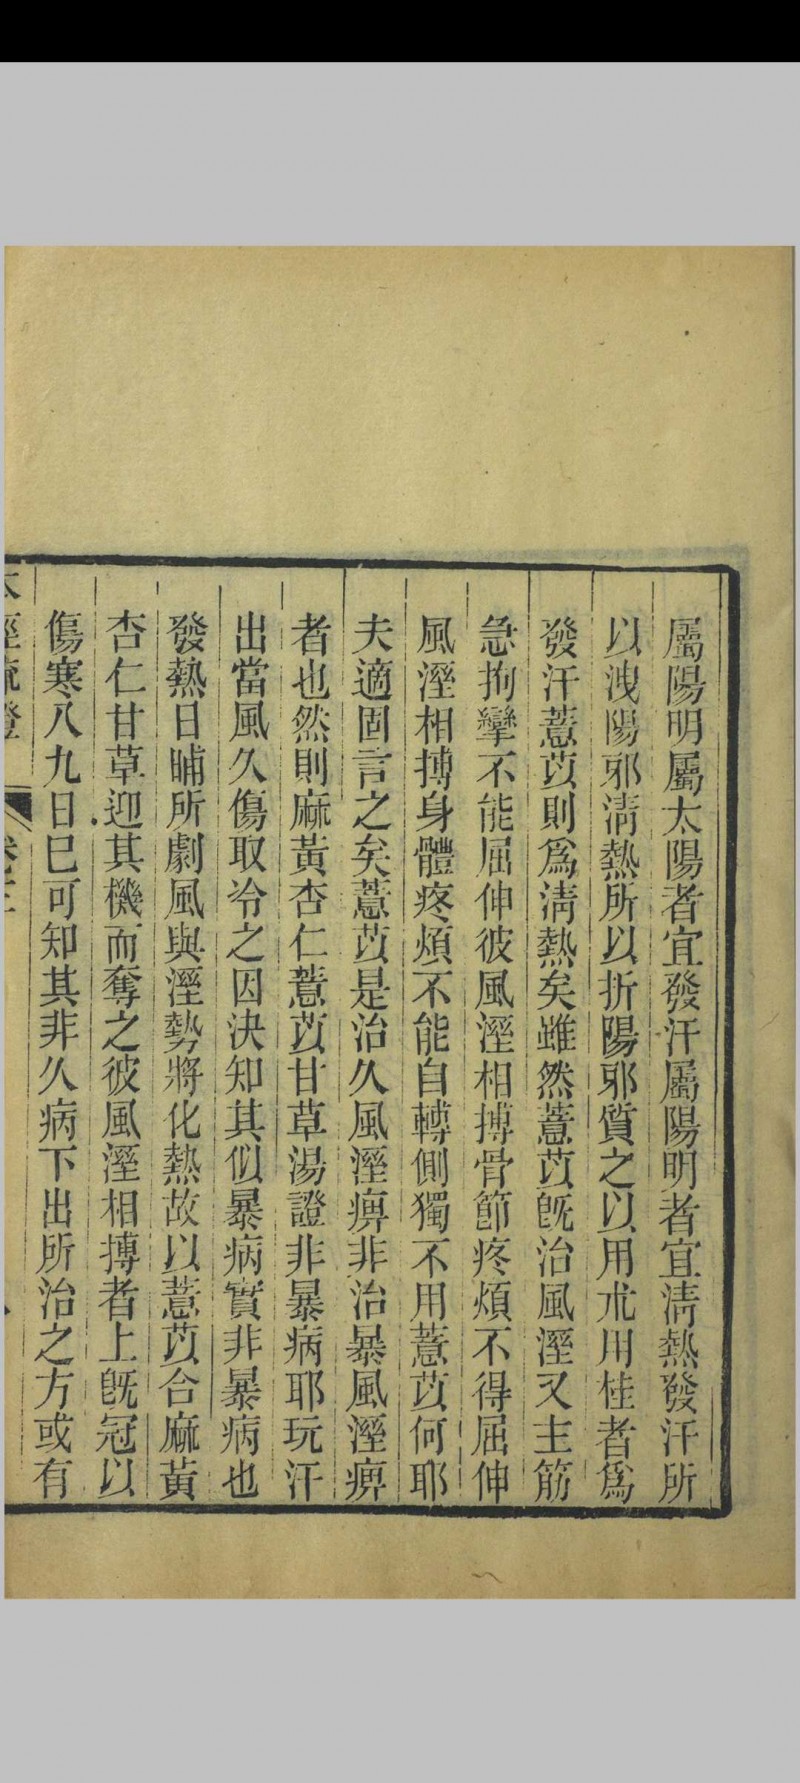 屬陽明屬太陽者宜發汗屬陽明者宜淸熱發汗所
以洩陽邪淸熱所以折陽邪質之以用朮用桂者爲
發汗薏苡則爲淸熱矣雖然薏苡旣治風溼又主筋
急拘攣不能屈伸彼風溼相搏骨節疼煩不得屈伸
風溼相搏身體疼煩不能自轉側獨不用薏苡何耶
夫適固言之矣薏苡是治久風溼痹非治暴風溼痹
者也然則麻黃杏仁薏苡甘草湯證非暴病耶玩汗
出當風久傷取冷之因決知其似暴病實非暴病也
發熱日晡所劇風與溼勢將化熱故以薏苡合麻黃
杏仁甘草迎其機而奪之彼風溼相搏者上旣冠以
傷寒八九日已可知其非久病下出所治之方或有
本經疏證 卷三